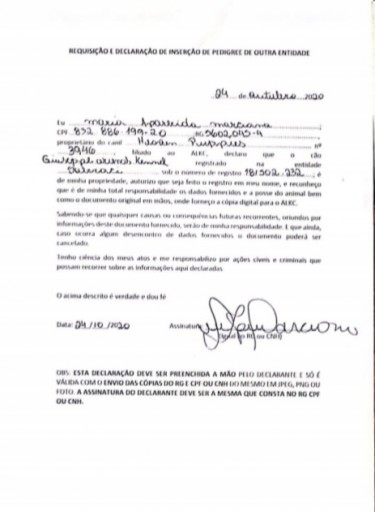 REQUISIÇÃO E DECLARAÇÃO DE INSERÇÃO DE PEDIGREE DE OUTRA ENTIDADE
24 de outubro 2020
Eu Maria Aparecida Marciana
CPF 852 886 199-20 RG
proprietário do canil nº
3946, filiado ao ALKC, declaro que o cão
Kennel registrado na entidade
sob o número de registro 18/502.232, é
de minha propriedade, autorizo que seja feito o registro em meu nome, e reconheço
que é de minha total responsabilidade os dados fornecidos e a posse do animal bem
como o documento original em mãos, onde forneço a cópia digital para o ALKC.
Sabendo-se que quaisquer causas ou consequências futuras recorrentes, oriundos por
informações deste documento fornecido, serão de minha responsabilidade. E que ainda,
caso ocorra algum desencontro de dados fornecidos o documento poderá ser
cancelado.
Tenho ciência dos meus atos e me responsabilizo por ações cíveis e criminais que
possam recorrer sobre as informações aqui declaradas.
O acima descrito é verdade e dou fé
Data: 24/10/2020 Assinatura
(igual ao RG ou CNH)
OBS: ESTA DECLARAÇÃO DEVE SER PREENCHIDA A MÃO PELO DECLARANTE E SÓ É
VÁLIDA COM O ENVIO DAS CÓPIAS DO RG E CPF OU CNH DO MESMO EM JPEG, PNG OU
FOTO. A ASSINATURA DO DECLARANTE DEVE SER A MESMA QUE CONSTA NO RG CPF
OU CNH.